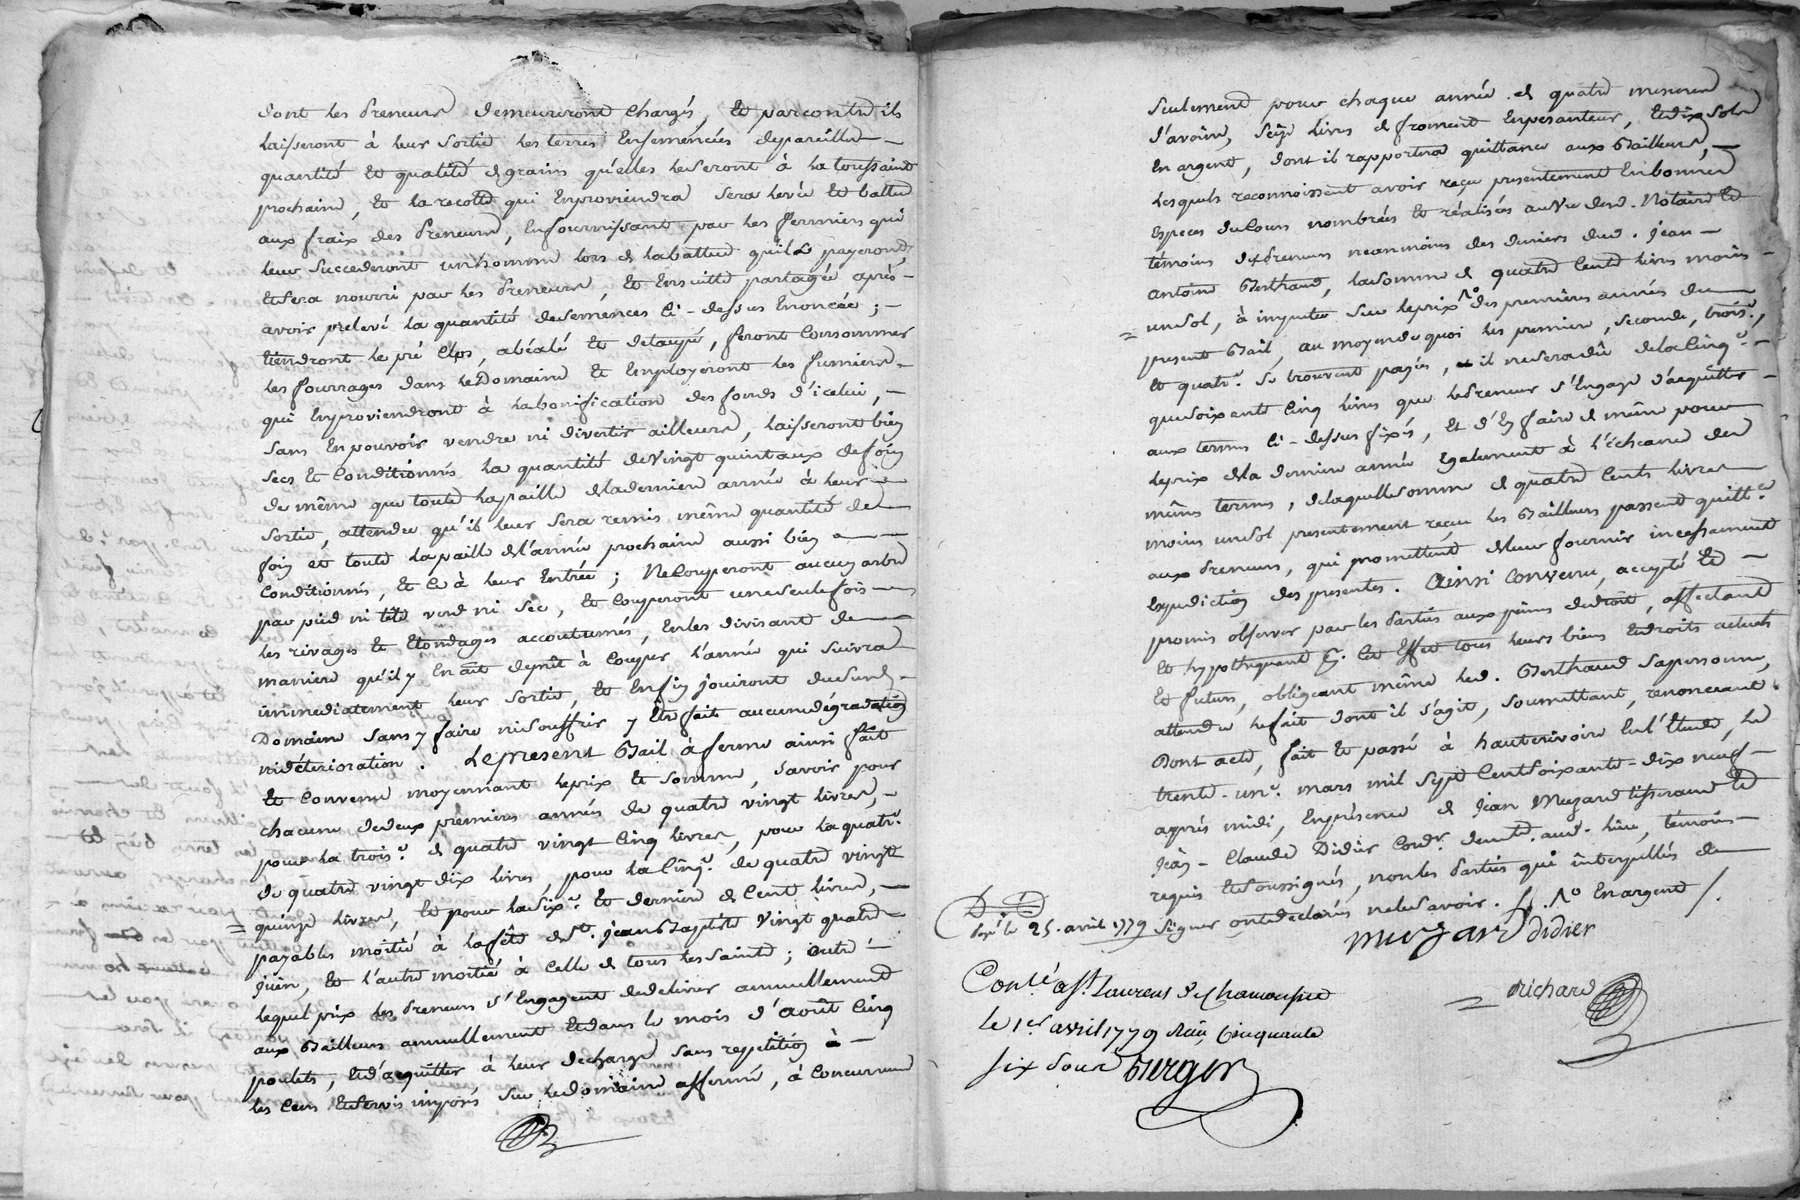 dont les Preneurs demeureront chargés, et par contre ils
laisseront à leur sortie les terres Ensemencées de pareille
quantité et qualité de grains qu'elles le seront à la toussaint
prochaine, et la recolte qui Enproviendra sera levée et battue
aux fraix des Preneurs, Enfournissant par les fermiers qui
leur succederont un homme lors de la battue qu'ils payeront,
et sera nourri par les Preneurs, et Ensuitte partagée après
avoir prelevé la quantité de semences ci-dessus Enoncée ;
tiendront le pré clos, abéalé et detaupé, feront consommer
les fourrages dans le Domaine et Employeront les fumiers
qui Enproviendront à la bonification des fonds d'icelui,
sans En pouvoir vendre ni divertir ailleurs, laisseront bien
secs et Conditionnés la quantité de Vingt quintaux de foin
de même que toute la paille de la derniere année à leur
sortie, attendu qu'il leur sera remis même quantité de
foin et toute la paille de l'année prochaine aussi bien
Conditionnés, et ce à leur Entrée ; Ne Couperont aucun arbre
par pied ni tête verd ni sec, et Couperont une seule fois
les rivages et Etondages accoutumés, En les divisant de
maniere qu'il y En ait de prêt à Couper l'année qui suivra
immediatement leur sortie, et Enfin jouiront du susd.
Domaine sans y faire ni souffrir y Etre fait aucune dégradation
ni déterioration. Le present Bail à ferme ainsi fait
et Convenu moyennant le prix et somme, savoir pour
chacune de deux premieres années de quatre vingt livres,
pour la trois.e de quatre vingt Cinq livres, pour la quatr.e
de quatre vingt dix livres, pour la Cinq.e de quatre vingt
quinze livres, et pour la six.e et derniere de Cent livres,
payables moitié à la fête de St. Jean Baptiste Vingt quatre
juin, et l'autre moitié à celle de tous les Saints ; outre
lequel prix les Preneurs s'Engagent de delivrer annuellement
aux Bailleurs annuellement et dans le mois d'août Cinq
poulets, et d'acquitter à leur decharge sans repetition à
les Cens et servis imposés sur le domaine affermé, à Concurrence
seulement pour chaque année de quatre mesures
d'avoine, seize livres de froment En pesanteur, et dix sols
En argent, dont il rapportera quittance aux Bailleurs,
lesquels reconnoissent avoir reçu presentement En bonnes
Especes du Cours nombrées et réalisées au Vu dud. Notaire et
témoins des Preneurs neanmoins des deniers dud. Jean
Antoine Berthaud, la somme de quatre Cents livres moins
un sol, à imputer sur le prix des premieres années du
present Bail, au moyen de quoi les premiere, seconde, trois.e,
et quatr.e se trouvent payées, il ne sera dû de la Cinq.e
que soixante Cinq livres que les Preneurs s'Engage d'acquitter
aux termes ci-dessus fixés, et d'En faire de même pour
le prix de la derniere année Egalement à l'Echeance des
mêmes termes, de laquelle somme de quatre Cents livres
moins un sol presentement reçue les Bailleurs passent quitt.ce
aux Preneurs, qui promettent de leur fournir incessamment
Expedition des presentes. Ainsi Convenu, accepté et
promis observer par les Parties aux peines de droit, affectant
et hypothequant à Cet Effet tous leurs biens et droits actuels
et futurs, obligeant même led. Berthaud sa personne,
attendu le fait dont il s'agit, soumettant, renonceant.
Dont acte, fait et passé à hauterivoire En l'Etude, le
trente-un.e mars mil sept Cent soixante-dix neuf
après midi, En presence de Jean Muzard tisserand et
Jean-Claude Didier Cord.r demt. aud. lieu, témoins
requis et soussignés, non les Parties qui interpellés de
signer ont declarés ne le savoir. En argent
payé le 25. avril 1779
muzard didier
Richard
Conté. à St. Laurent de Chamousset
le 1er avril 1779 Reçu Cinquante
six sous Berger